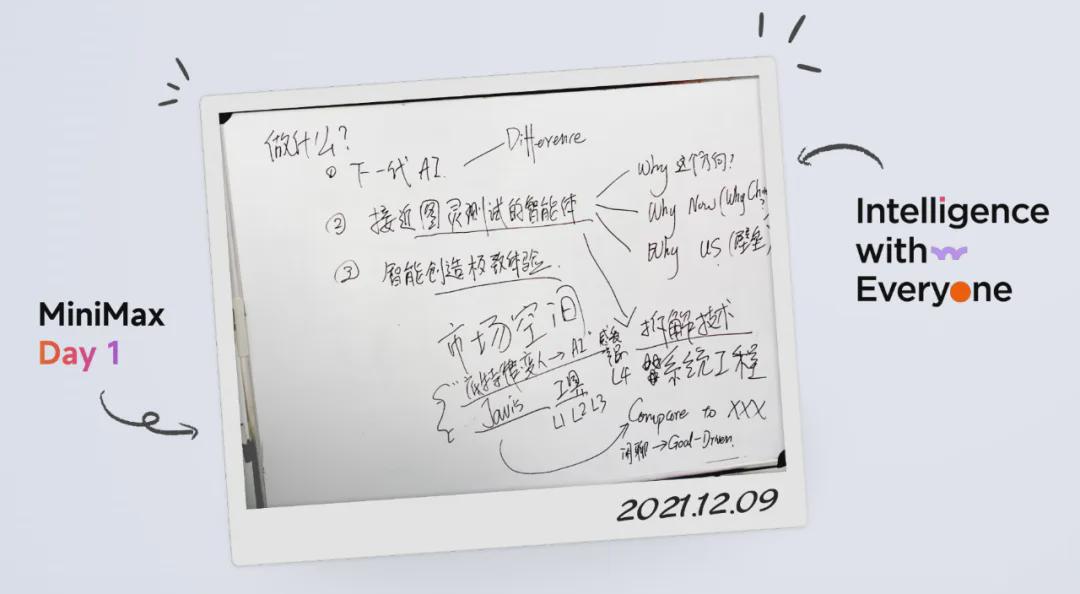 MiniMax
Day 1
Intelligence
with
Everyone
做什么?
① 下一代 AI
Difference
② 接近图灵测试的智能体
Why 这个方向?
Why Now (Why
Why US (壁垒)
③ 智能创造极致体验.
市场空间
变人→AI"
Javis
工具
L1 L2 L3
L4
拆解技术
系统工程
Compare to XXX
闲聊→Goal-Driven
2021.12.09